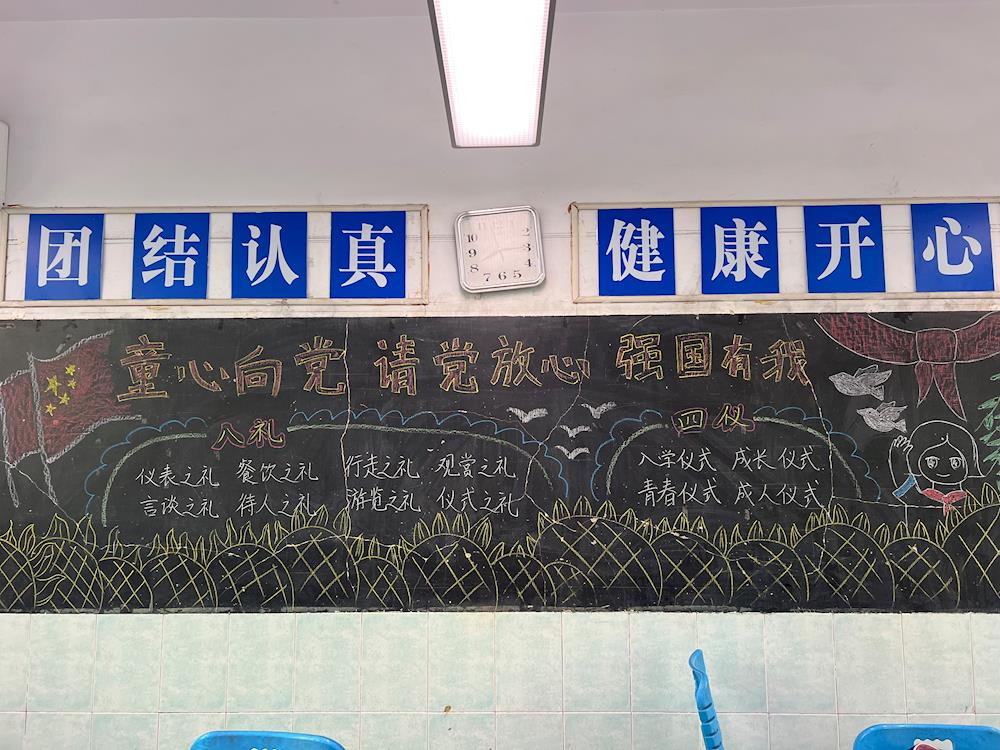 团结认真
健康开心
10 2
9 3
8 4
7 6 5
童心向党 请党放心 强国有我
八礼
四仪
仪表之礼 餐饮之礼 行走之礼 观赏之礼
言谈之礼 待人之礼 游览之礼 仪式之礼
入学仪式 成长仪式
青春仪式 成人仪式